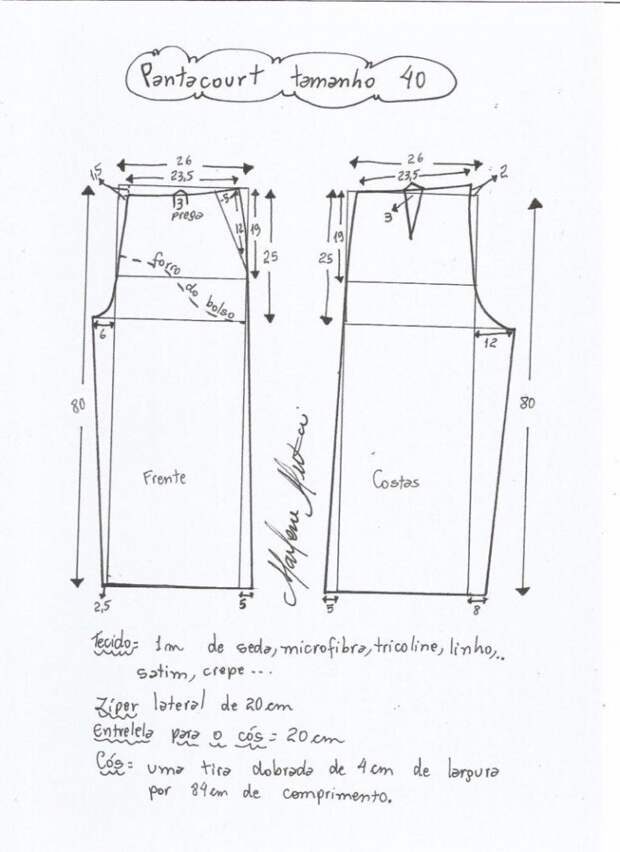 Pantacourt tamanho 40
26
23,5
1,5
3
prega
5
12
19
25
forro
do
bolso
6
80
Frente
2,5
5
26
23,5
2
3
19
25
12
80
Costas
5
8
Marlene Mukai
Tecido= 1m de seda, microfibra, tricoline, linho,..
satim, crepe ...
Zíper lateral de 20cm
Entretela para o cós= 20cm
Cós= uma tira dobrada de 4cm de largura
por 84cm de comprimento.